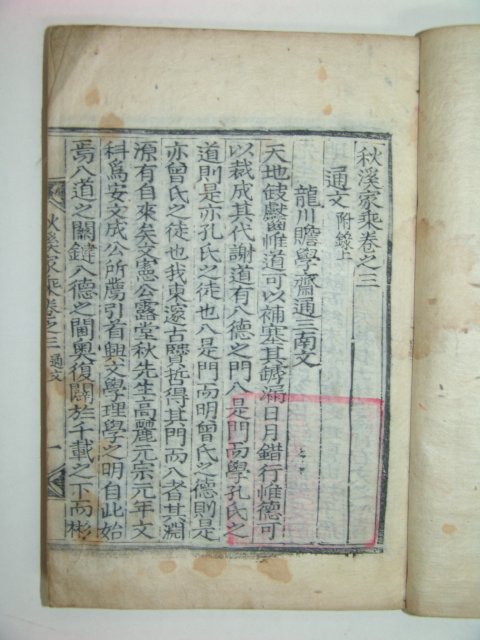 秋溪家乘卷之三
通文 附錄上
龍川贍學齋通三南文
天地㱁齾惟道可以補塞其罅漏日月錯行惟德可
以裁成其代謝道有八德之門入是門而學孔氏之
道則是亦孔氏之徒也入是門而明曾氏之德則是
亦曾氏之徒也我東溟古賢哲得其門而入者其淵
源有自來矣文憲公露堂秋先生高麗元宗元年文
科爲安文成公所薦引首興文學理學之明自此始
焉八道之關鍵入德之閫奧復闢於千載之下而彬
秋溪家乘卷之三 通文 一